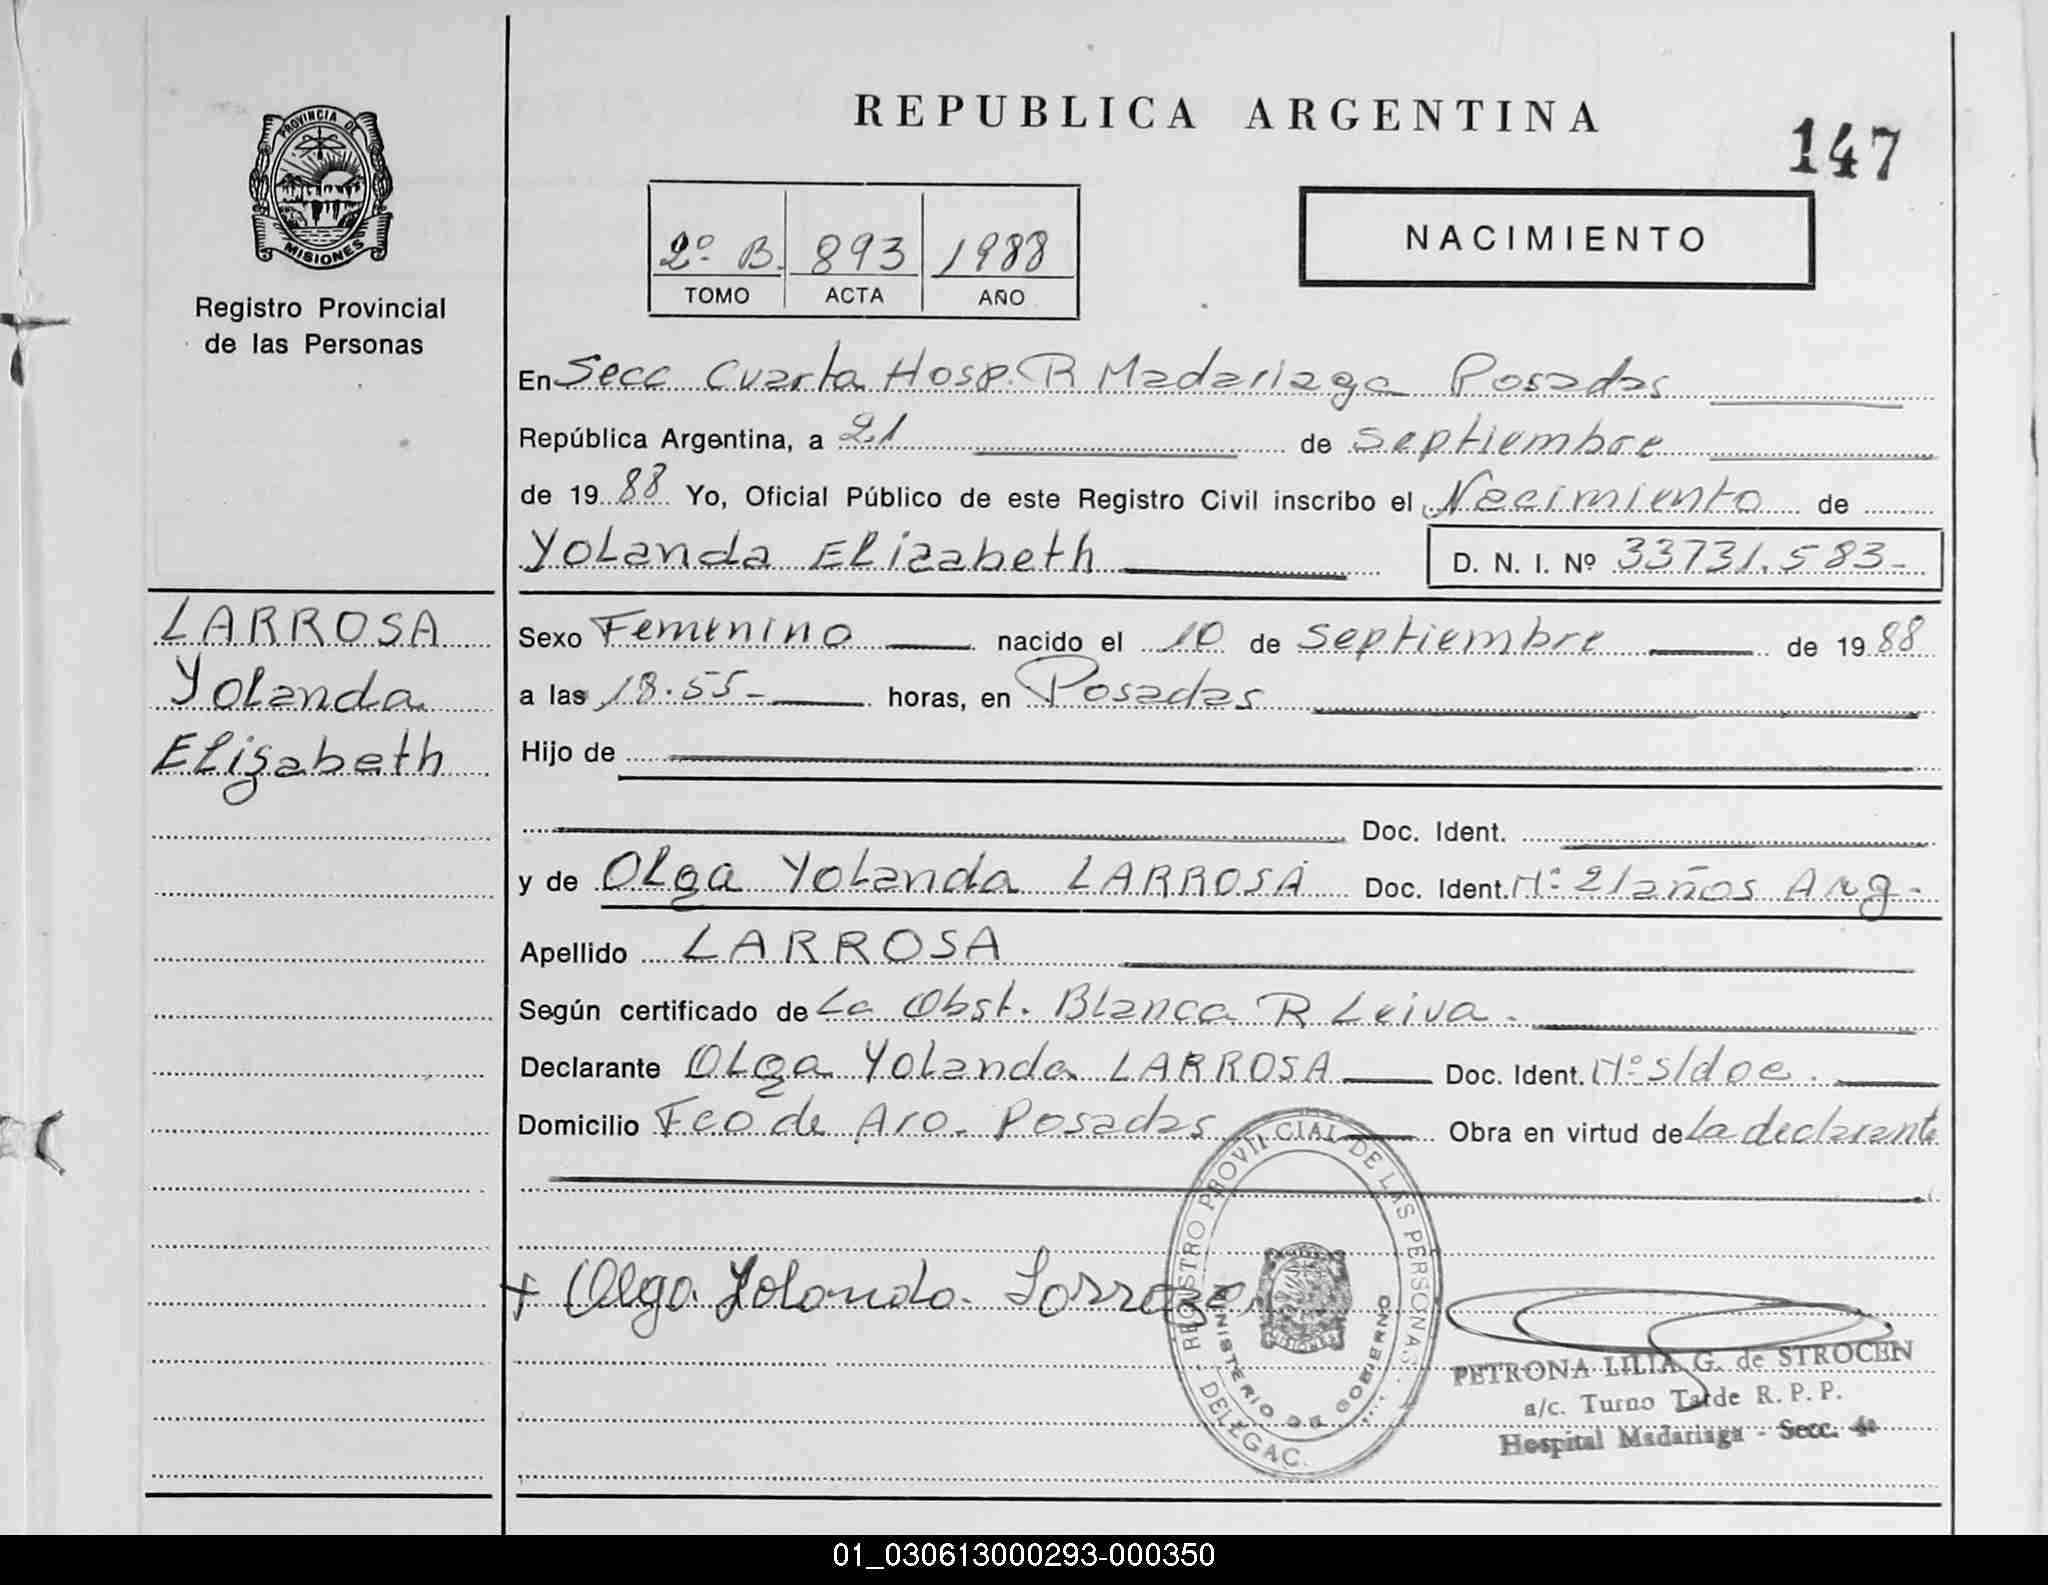 PROVINCIA DE
MISIONES
Registro Provincial
de las Personas
LARROSA
Yolanda
Elizabeth
REPUBLICA ARGENTINA
147
NACIMIENTO
2º B. 893 1988
TOMO ACTA AÑO
En Secc Cuarta Hosp. R Madariaga Posadas
República Argentina, a 21 de Septiembre
de 19 88 Yo, Oficial Público de este Registro Civil inscribo el Nacimiento de
Yolanda Elizabeth D. N. I. Nº 33731.583-
Sexo Femenino nacido el 10 de Septiembre de 19 88
a las 18.55- horas, en Posadas
Hijo de
Doc. Ident.
y de Olga Yolanda LARROSA Doc. Ident. Nº 21 años Arg.
Apellido LARROSA
Según certificado de La Obst. Blanca R Leiva.
Declarante Olga Yolanda LARROSA Doc. Ident. Nº s/doc.
Domicilio Fco de Aro. Posadas Obra en virtud de La declarante
+ Olga Yolanda Larroza
REGISTRO PROVINCIAL DE LAS PERSONAS
MINISTERIO DE GOBIERNO
DELEGAC.
PETRONA LILIA G. de STROCEN
a/c. Turno Tarde R. P. P.
Hospital Madariaga - Secc. 4a
01_030613000293-000350